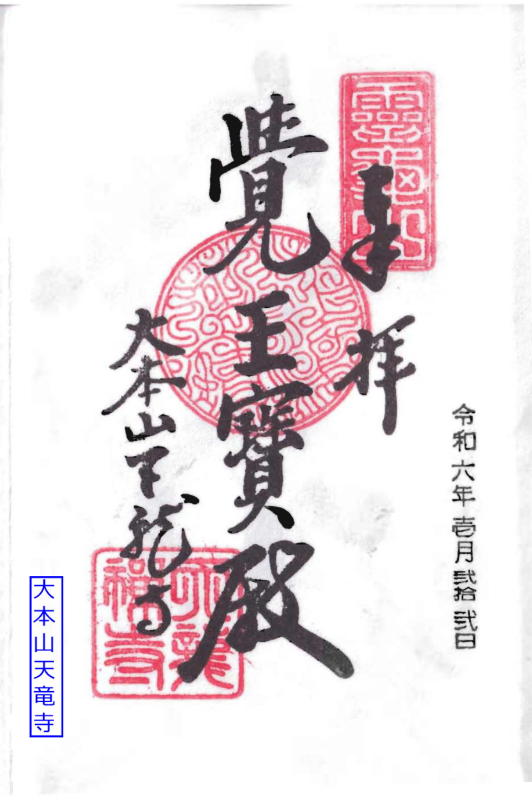 令和六年壱月弐拾弐日
奉拝
靈龜山
覺王寳殿
大本山天龍寺
大本山天竜寺